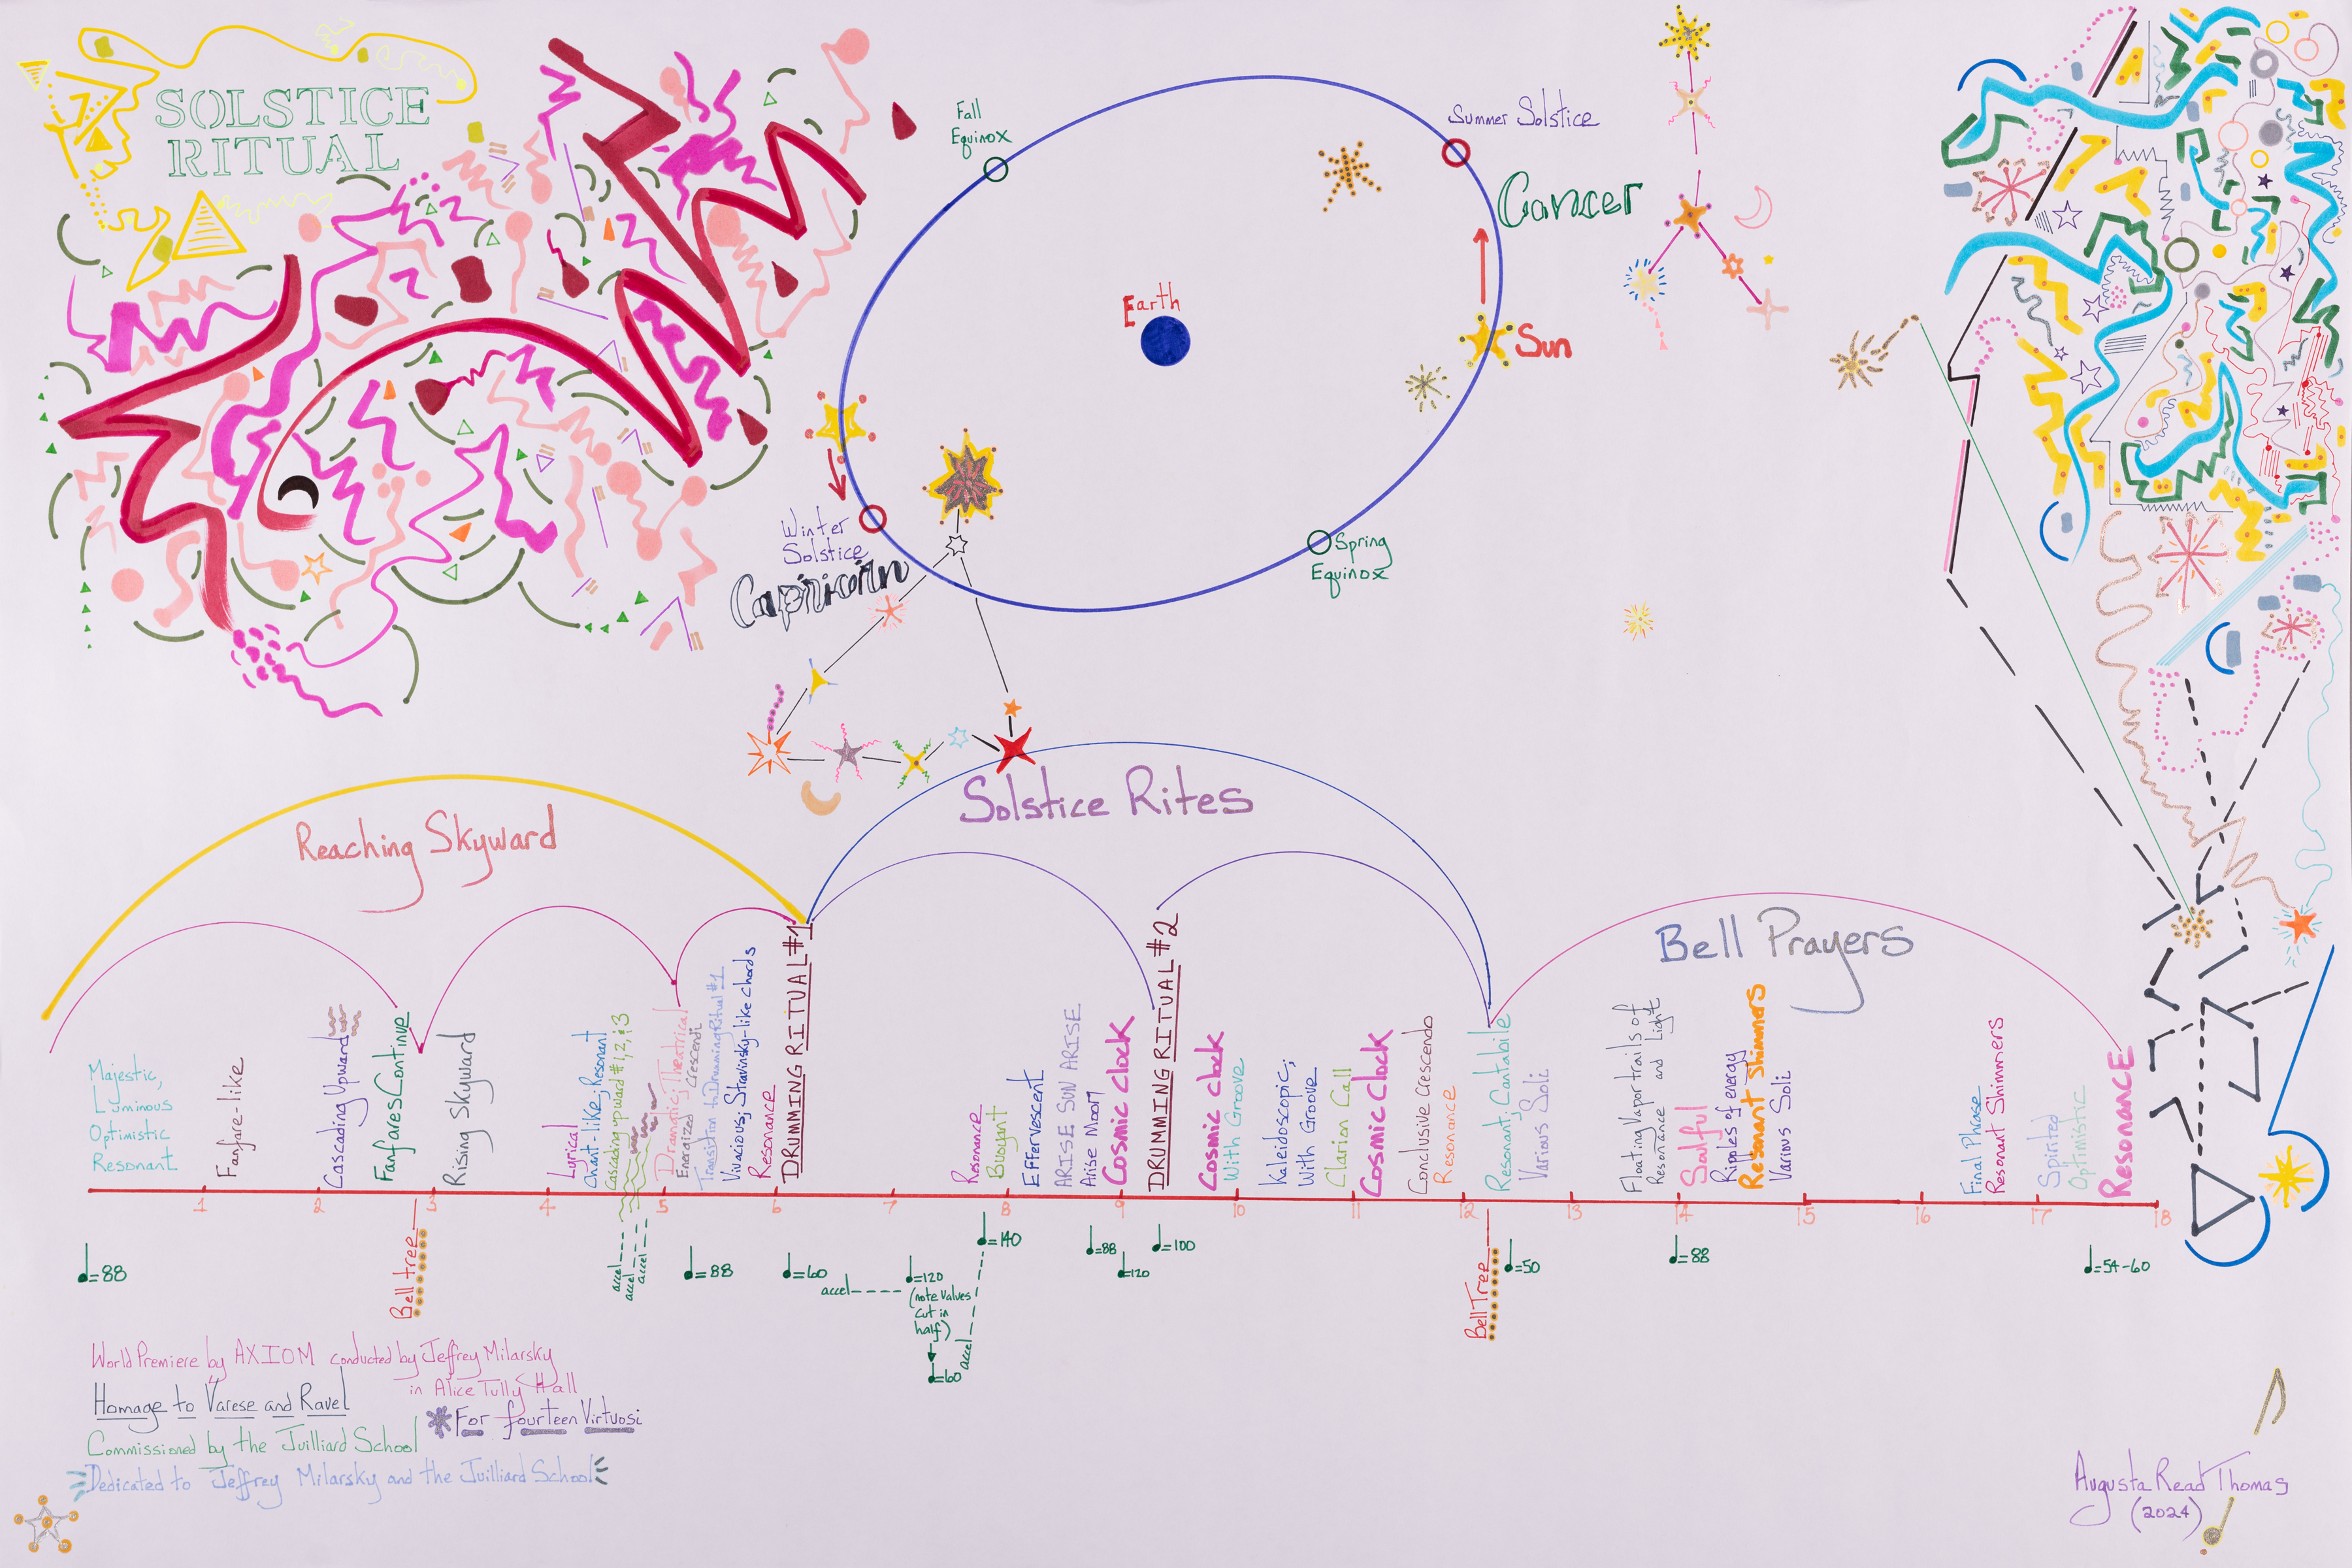 SOLSTICE
RITUAL
Fall
Equinox
Summer Solstice
Cancer
Earth
Sun
Winter
Solstice
Capricorn
Spring
Equinox
Reaching Skyward
Solstice Rites
Bell Prayers
Majestic,
Luminous
Optimistic
Resonant
Fanfare-like
Cascading Upward
Fanfares Continue
Rising Skyward
Lyrical
Chant-like; Resonant
Cascading upward #1, 2, & 3
Dramatic; Theatrical
Energized Crescendi
Transition to Drumming Ritual #1
Vivacious; Stravinsky-like chords
Resonance
DRUMMING RITUAL #1
Resonance
Buoyant
Effervescent
ARISE SUN ARISE
Arise Moon
Cosmic Clock
DRUMMING RITUAL #2
Cosmic Clock
With Groove
Kaleidoscopic;
With Groove
Clarion Call
Cosmic Clock
Conclusive Crescendo
Resonance
Resonant; Cantabile
Various Soli
Floating Vapor trails of
Resonance and Light
Soulful
Ripples of energy
Resonant Shimmers
Various Soli
Final Phrase
Resonant Shimmers
Spirited
Optimistic
Resonance
1 2 3 4 5 6 7 8 9 10 11 12 13 14 15 16 17 18
♩=88
Bell tree
accel---
accel---
accel---
♩=88
♩=60
accel----
♩=120
(note values
cut in
half)
♩=60
accel
♩=140
♩=88
♩=120
♩=100
Bell Tree
♩=50
♩=88
♩=54-60
World Premiere by AXIOM conducted by Jeffrey Milarsky
in Alice Tully Hall
Homage to Varese and Ravel
For fourteen Virtuosi
Commissioned by the Juilliard School
Dedicated to Jeffrey Milarsky and the Juilliard School
Augusta Read Thomas
(2024)